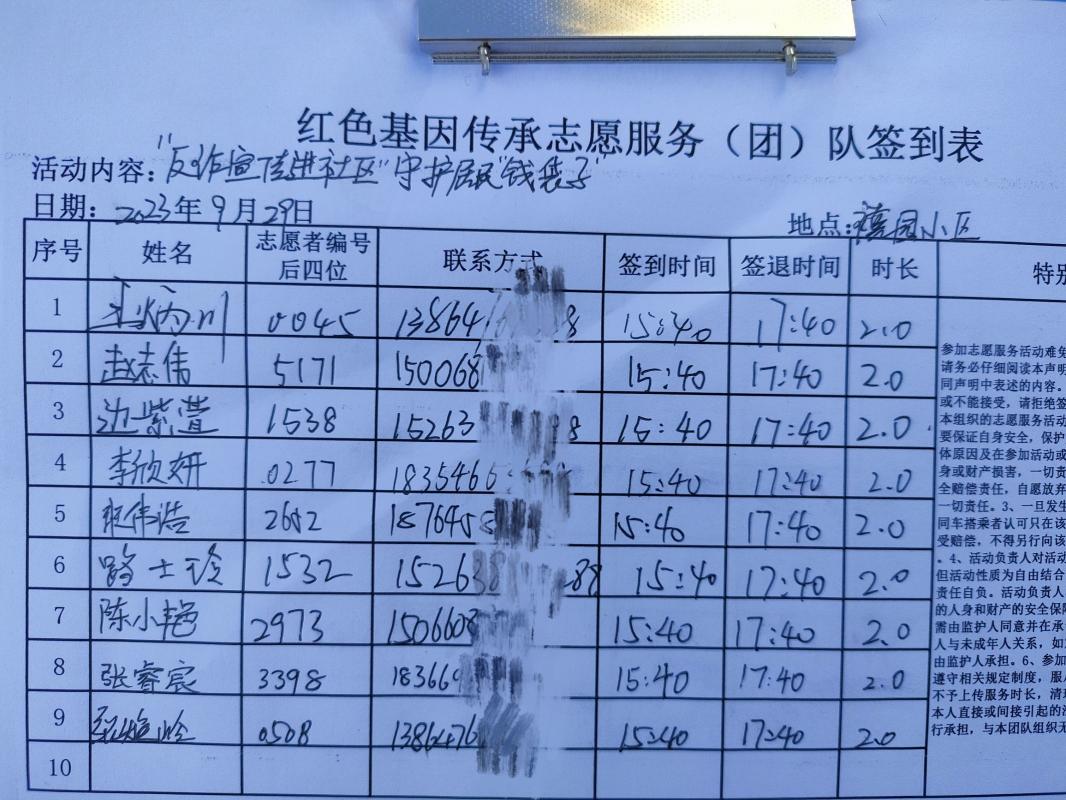 红色基因传承志愿服务（团）队签到表
活动内容："反诈宣传进社区"守护居民"钱袋子"
日期：2023年9月29日
地点：禧园小区
序号 姓名 志愿者编号后四位 联系方式 签到时间 签退时间 时长 特别
1 0045 13864 8 15:40 17:40 2.0
2 赵志伟 5171 150068 15:40 17:40 2.0
3 边紫萱 1538 15263 8 15:40 17:40 2.0
4 李欣妍 0277 1835466 15:40 17:40 2.0
5 伟浩 2652 1876458 15:40 17:40 2.0
6 路士玲 1532 15263 88 15:40 17:40 2.0
7 陈小艳 2973 1506608 15:40 17:40 2.0
8 张睿宸 3398 18366 15:40 17:40 2.0
9 0508 1386476 15:40 17:40 2.0
10
参加志愿服务活动难免
请务必仔细阅读本声明
同声明中表述的内容。
或不能接受，请拒绝签
本组织的志愿服务活动
要保证自身安全，保护
体原因及在参加活动或
身或财产损害，一切责
全赔偿责任，自愿放弃
一切责任。3、一旦发生
同车搭乘者认可只在该
受赔偿，不得另行向该
。4、活动负责人对活动
但活动性质为自由结合
责任自负。活动负责人
的人身和财产的安全保障
需由监护人同意并在承
人与未成年人关系，如
由监护人承担。6、参加
遵守相关规定制度，服从
不予上传服务时长，清
本人直接或间接引起的
行承担，与本团队组织无